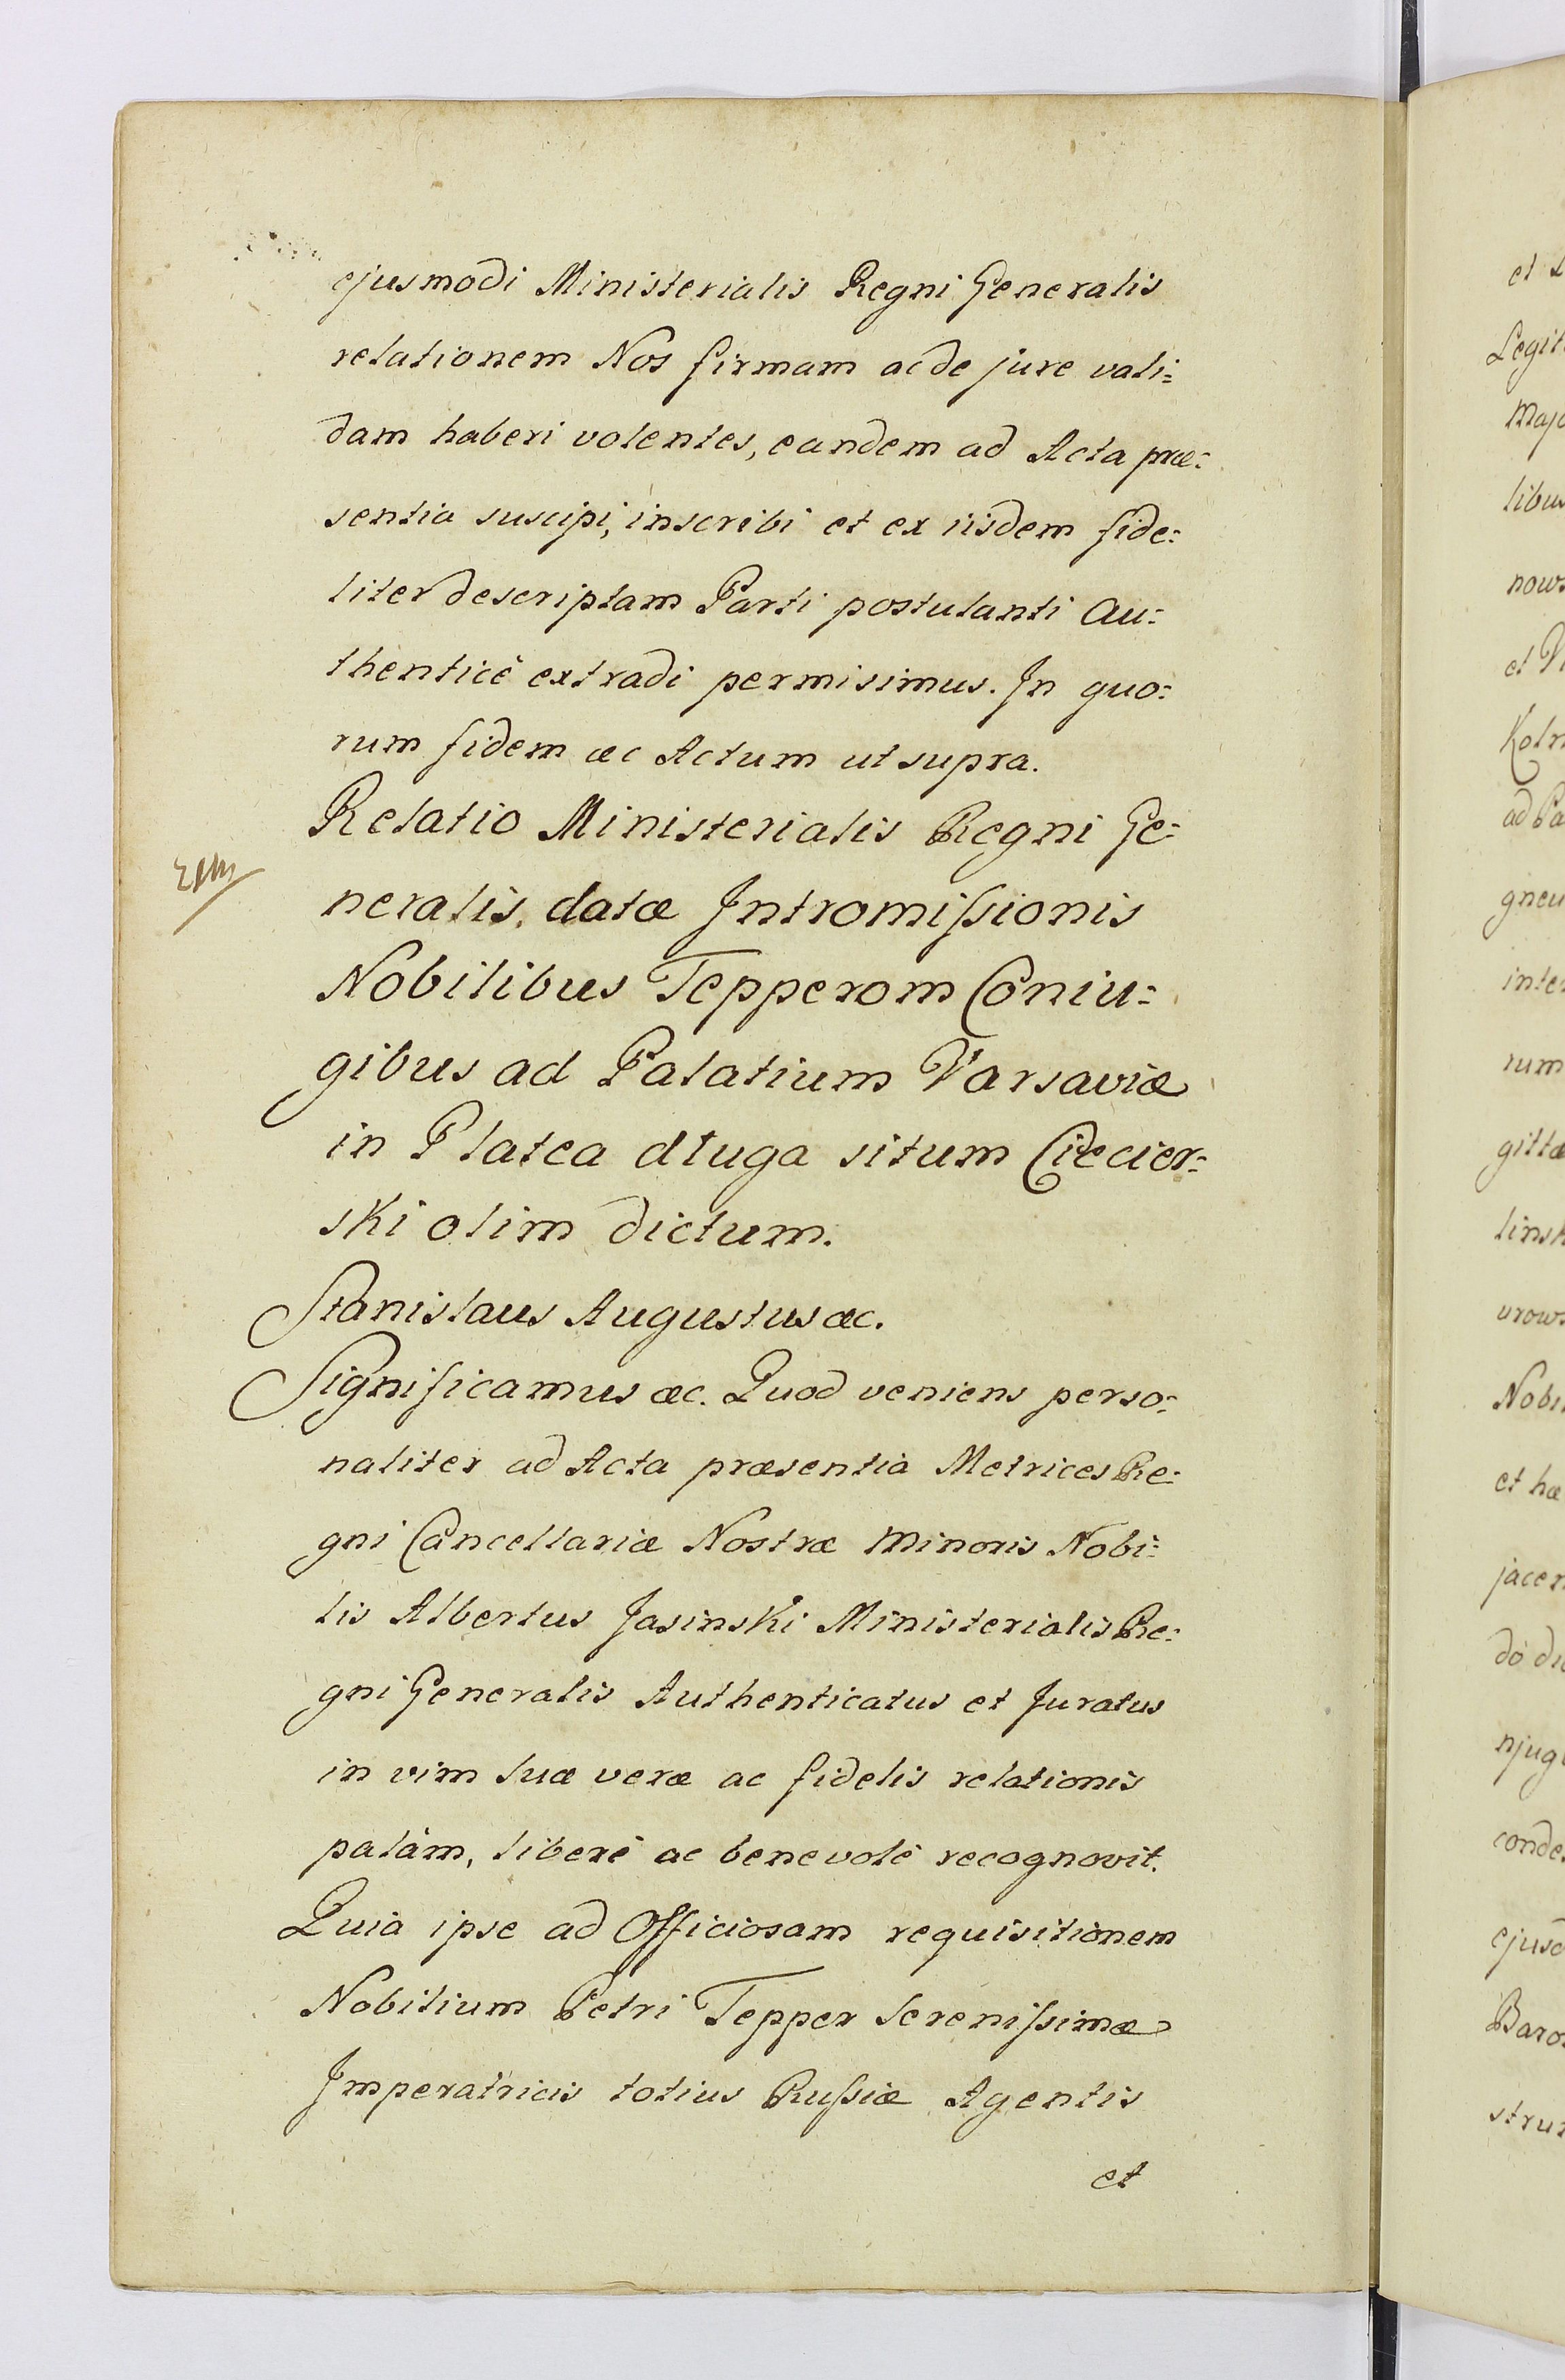 ejusmodi Ministerialis Regni Generalis
relationem Nos firmam ac de jure vali=
dam haberi volentes, eandem ad Acta præ=
sentia suscipi, inscribi et ex iisdem fide=
liter descriptam Parti postulanti au=
thenticè extradi permisimus. In quo=
rum fidem æc Actum ut supra.
Relatio Ministerialis Regni Ge=
neralis, datæ Intromissionis
Nobilibus Tepperom Coniu=
gibus ad Palatium Varsaviæ
in Platea długa situm Ciecier=
ski olim dictum.
Stanislaus Augustus æc.
Significamus æc. Quod veniens perso=
naliter ad Acta præsentia Metrices Re=
gni Cancellariæ Nostræ Minoris Nobi=
lis Albertus Jasinski Ministerialis Re=
gni Generalis Authenticatus et Juratus
in vim suæ veræ ac fidelis relationis
palàm, liberè ac benevolè recognovit.
Quia ipse ad Officiosam requisitionem
Nobilium Petri Tepper Serenissimæ
Imperatricis totius Russiæ Agentis
et
et
Legit
Majo
libus
nows
et
Koln
ad Pa
gneu
inter
rum
gitta
linsk
urows
Nobi
et hæ
jacen
dò di
njug
conde
ejusd
Baro
strum